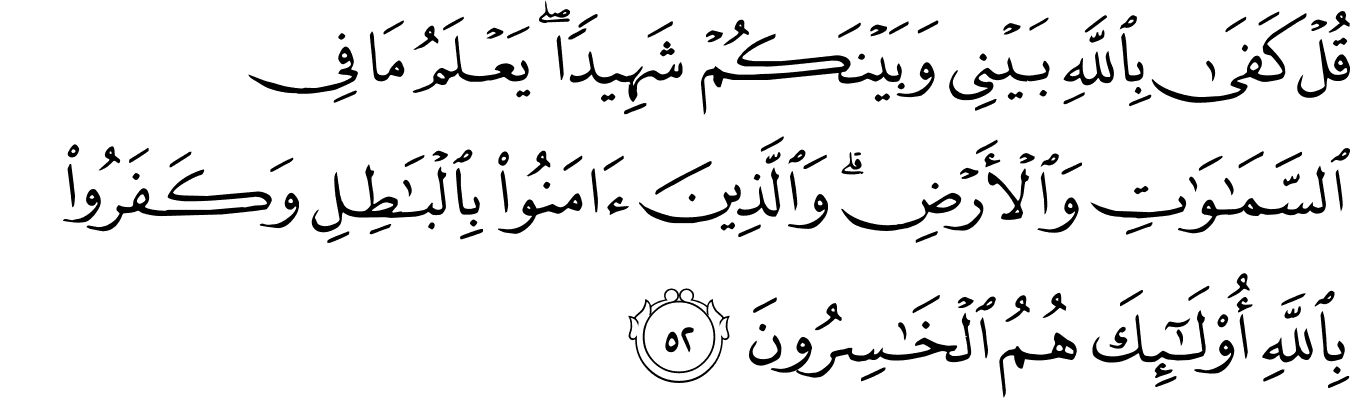 قُلْ كَفَىٰ بِٱللَّهِ بَيْنِى وَبَيْنَكُمْ شَهِيدًا ۖ يَعْلَمُ مَا فِى
ٱلسَّمَـٰوَٰتِ وَٱلْأَرْضِ ۗ وَٱلَّذِينَ ءَامَنُوا۟ بِٱلْبَـٰطِلِ وَكَفَرُوا۟
بِٱللَّهِ أُو۟لَـٰٓئِكَ هُمُ ٱلْخَـٰسِرُونَ ٥٢